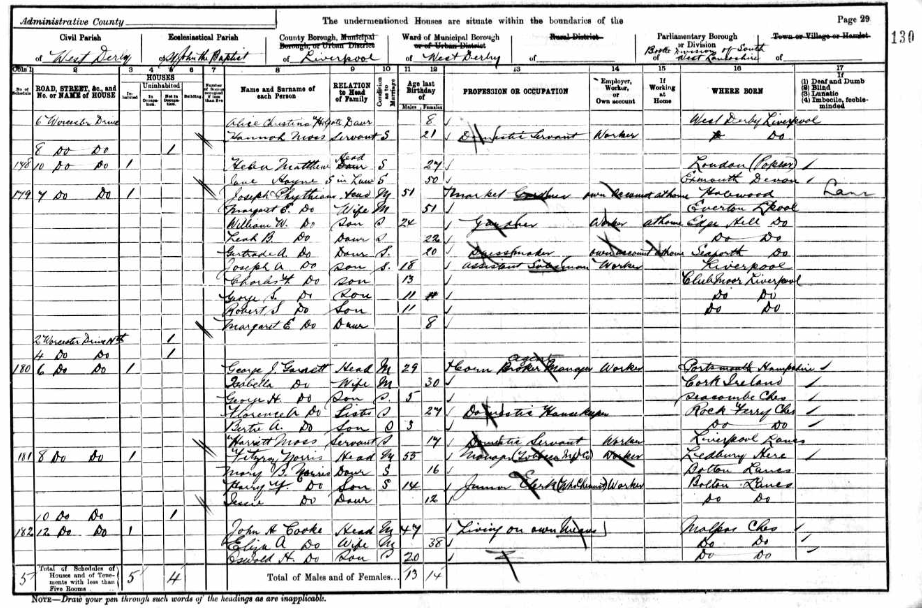 Administrative County
The undermentioned Houses are situate within the boundaries of the
Page 29
130
Civil Parish
Ecclesiastical Parish
County Borough, Municipal Borough, or Urban District
Ward of Municipal Borough or of Urban District
Rural District
Parliamentary Borough or Division
Town or Village or Hamlet
of West Derby
of St John the Baptist
of Liverpool
of West Derby
of
of
of
Cols 1 2 3 4 5 6 7 8 9 10 11 12 13 14 15 16 17
ROAD, STREET, &c., and No. or NAME of HOUSE
HOUSES
Uninhabited
Name and Surname of each Person
RELATION to Head of Family
Age last Birthday of
Males Females
PROFESSION OR OCCUPATION
Employer, Worker, or Own account
If Working at Home
WHERE BORN
If (1) Deaf and Dumb (2) Blind (3) Lunatic (4) Imbecile, feeble-minded
6 Worcester Drive Alice Christina Daur 8 West Derby Liverpool
Hannah Moss Servant S 21 Domestic Servant Worker Do
8 Do Do 1
178 10 Do Do 1 Helen Matthew Head S 27 London
Jane Hayne S in Law S 50 Exmouth Devon
179 7 Do Do 1 Joseph Head M 51 Market Gardner own account at home
Margaret E. Do Wife M 51 Everton
William W. Do Son S 24 Worker at home Edge Hill Do
Leah B. Do Daur S. 22 Do Do
Gertrude A. Do Daur S. 20 Dressmaker own account at home Seaforth Do
Joseph A Do Son S. 18 Assistant Worker Liverpool
Do Son 13 Club Moor Liverpool
George S. Do Son 11 Do Do
Robert S. Do Son 11 Do Do
Margaret E Do Daur 8
2 Worcester Drive Nth 1
4 Do Do 1
180 6 Do Do 1 George J. Garnett Head M 29 Corn Broker Manager agent Worker Portsmouth Hampshire
Isabella Do Wife M 30 Cork Ireland
George H. Do Son S 5 Seacombe Ches
Florence A Do Sister S 27 Domestic Housekeeper Rock Ferry Ches
Bertie A. Do Son 3 Do Do
Harriett Moss Servant S 17 Domestic Servant Worker Liverpool Lancs
181 8 Do Do 1 Norris Head M 55 Manager Worker Ledbury Here
Mary B Norris Daur S 16 Bolton Lancs
Harry Do Son S 14 Junior Clerk Worker Bolton Lancs
Jessie Do Daur 12 Do Do
10 Do Do 1
182 12 Do Do 1 John H Cooke Head M 47 Living on own Means Malpas Ches
Eliza A Do Wife M 38 Do Do
Oswald H. Do Son S 20 Do Do
5 Total of Schedules of Houses and of Tenements with less than Five Rooms 5 4 Total of Males and of Females... 13 14
NOTE—Draw your pen through such words of the headings as are inapplicable.